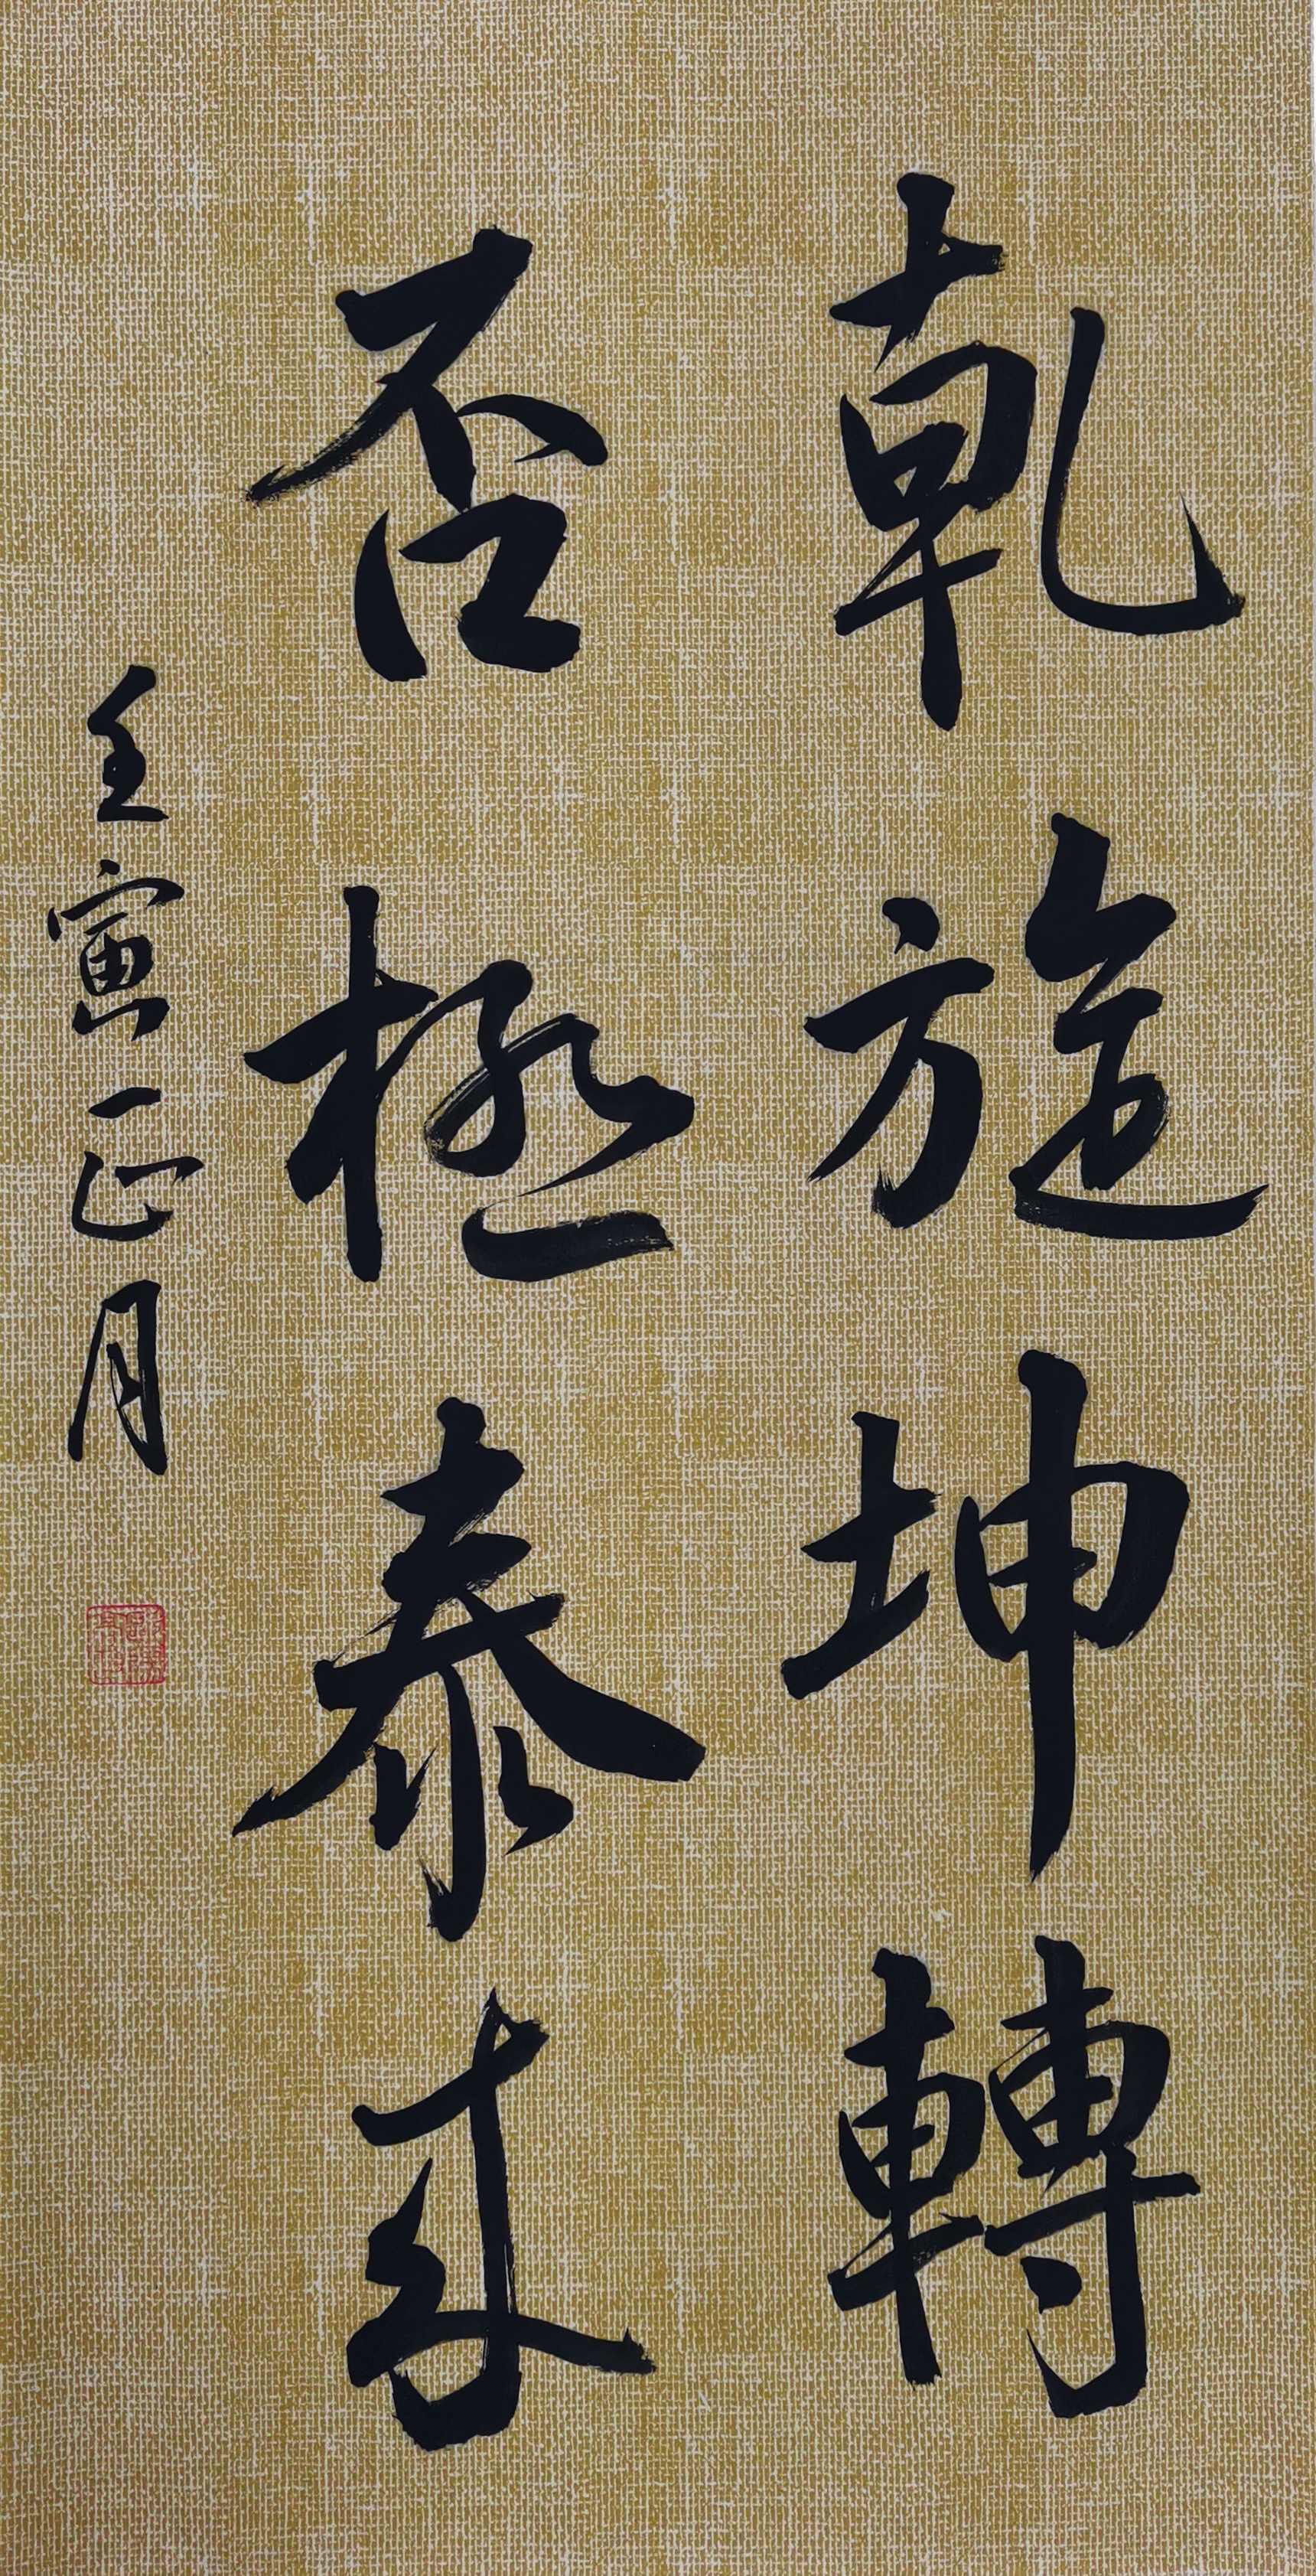 乾旋坤轉
否極泰来
壬寅正月